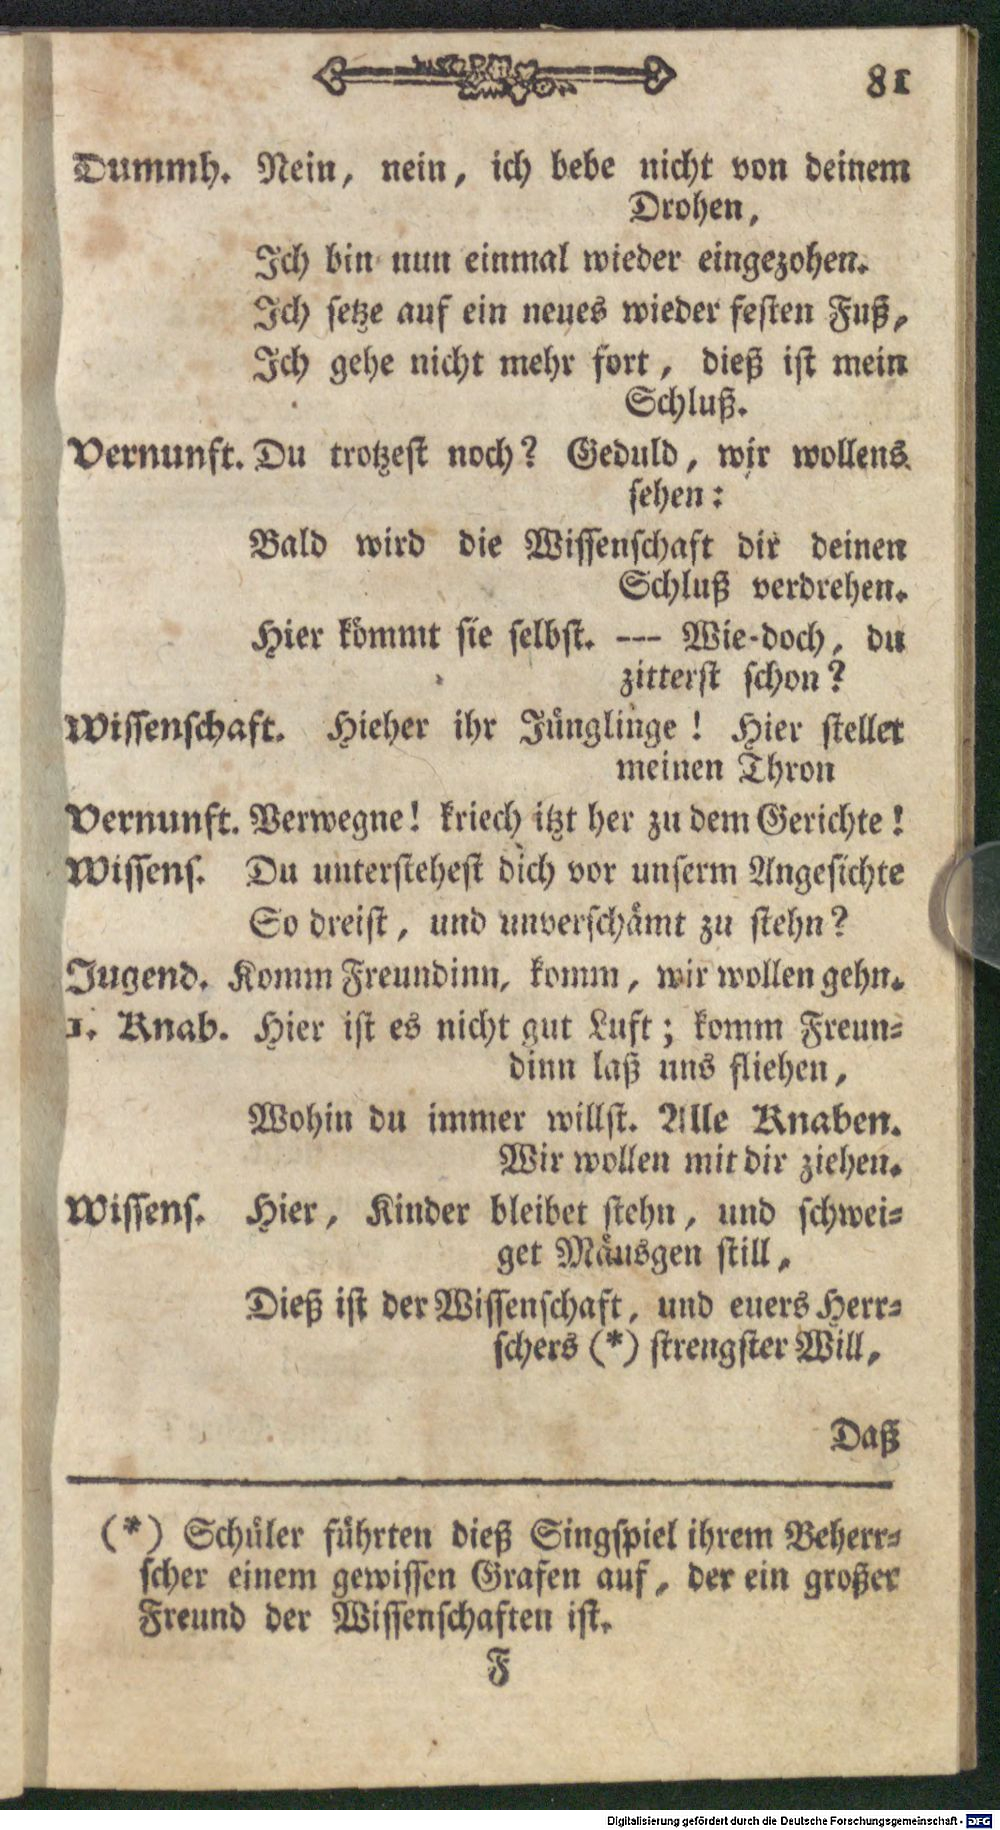 81
Dummh. Nein, nein, ich bebe nicht von deinem
Drohen,
Ich bin nun einmal wieder eingezohen.
Ich setze auf ein neues wieder festen Fuß,
Ich gehe nicht mehr fort, dieß ist mein
Schluß.
Vernunft. Du trotzest noch? Geduld, wir wollens
sehen:
Bald wird die Wissenschaft dir deinen
Schluß verdrehen.
Hier kömmt sie selbst. --- Wie-doch, du
zitterst schon?
Wissenschaft. Hieher ihr Jünglinge! Hier stellet
meinen Thron
Vernunft. Verwegne! kriech itzt her zu dem Gerichte!
Wissens. Du unterstehest dich vor unserm Angesichte
So dreist, und unverschämt zu stehn?
Jugend. Komm Freundinn, komm, wir wollen gehn.
1. Knab. Hier ist es nicht gut Luft; komm Freun-
dinn laß uns fliehen,
Wohin du immer willst. Alle Knaben.
Wir wollen mit dir ziehen.
Wissens. Hier, Kinder bleibet stehn, und schwei-
get Mäusgen still,
Dieß ist der Wissenschaft, und euers Herr-
schers (*) strengster Will,
Daß
(*) Schüler führten dieß Singspiel ihrem Beherr-
scher einem gewissen Grafen auf, der ein großer
Freund der Wissenschaften ist.
F
Digitalisierung gefördert durch die Deutsche Forschungsgemeinschaft - DFG